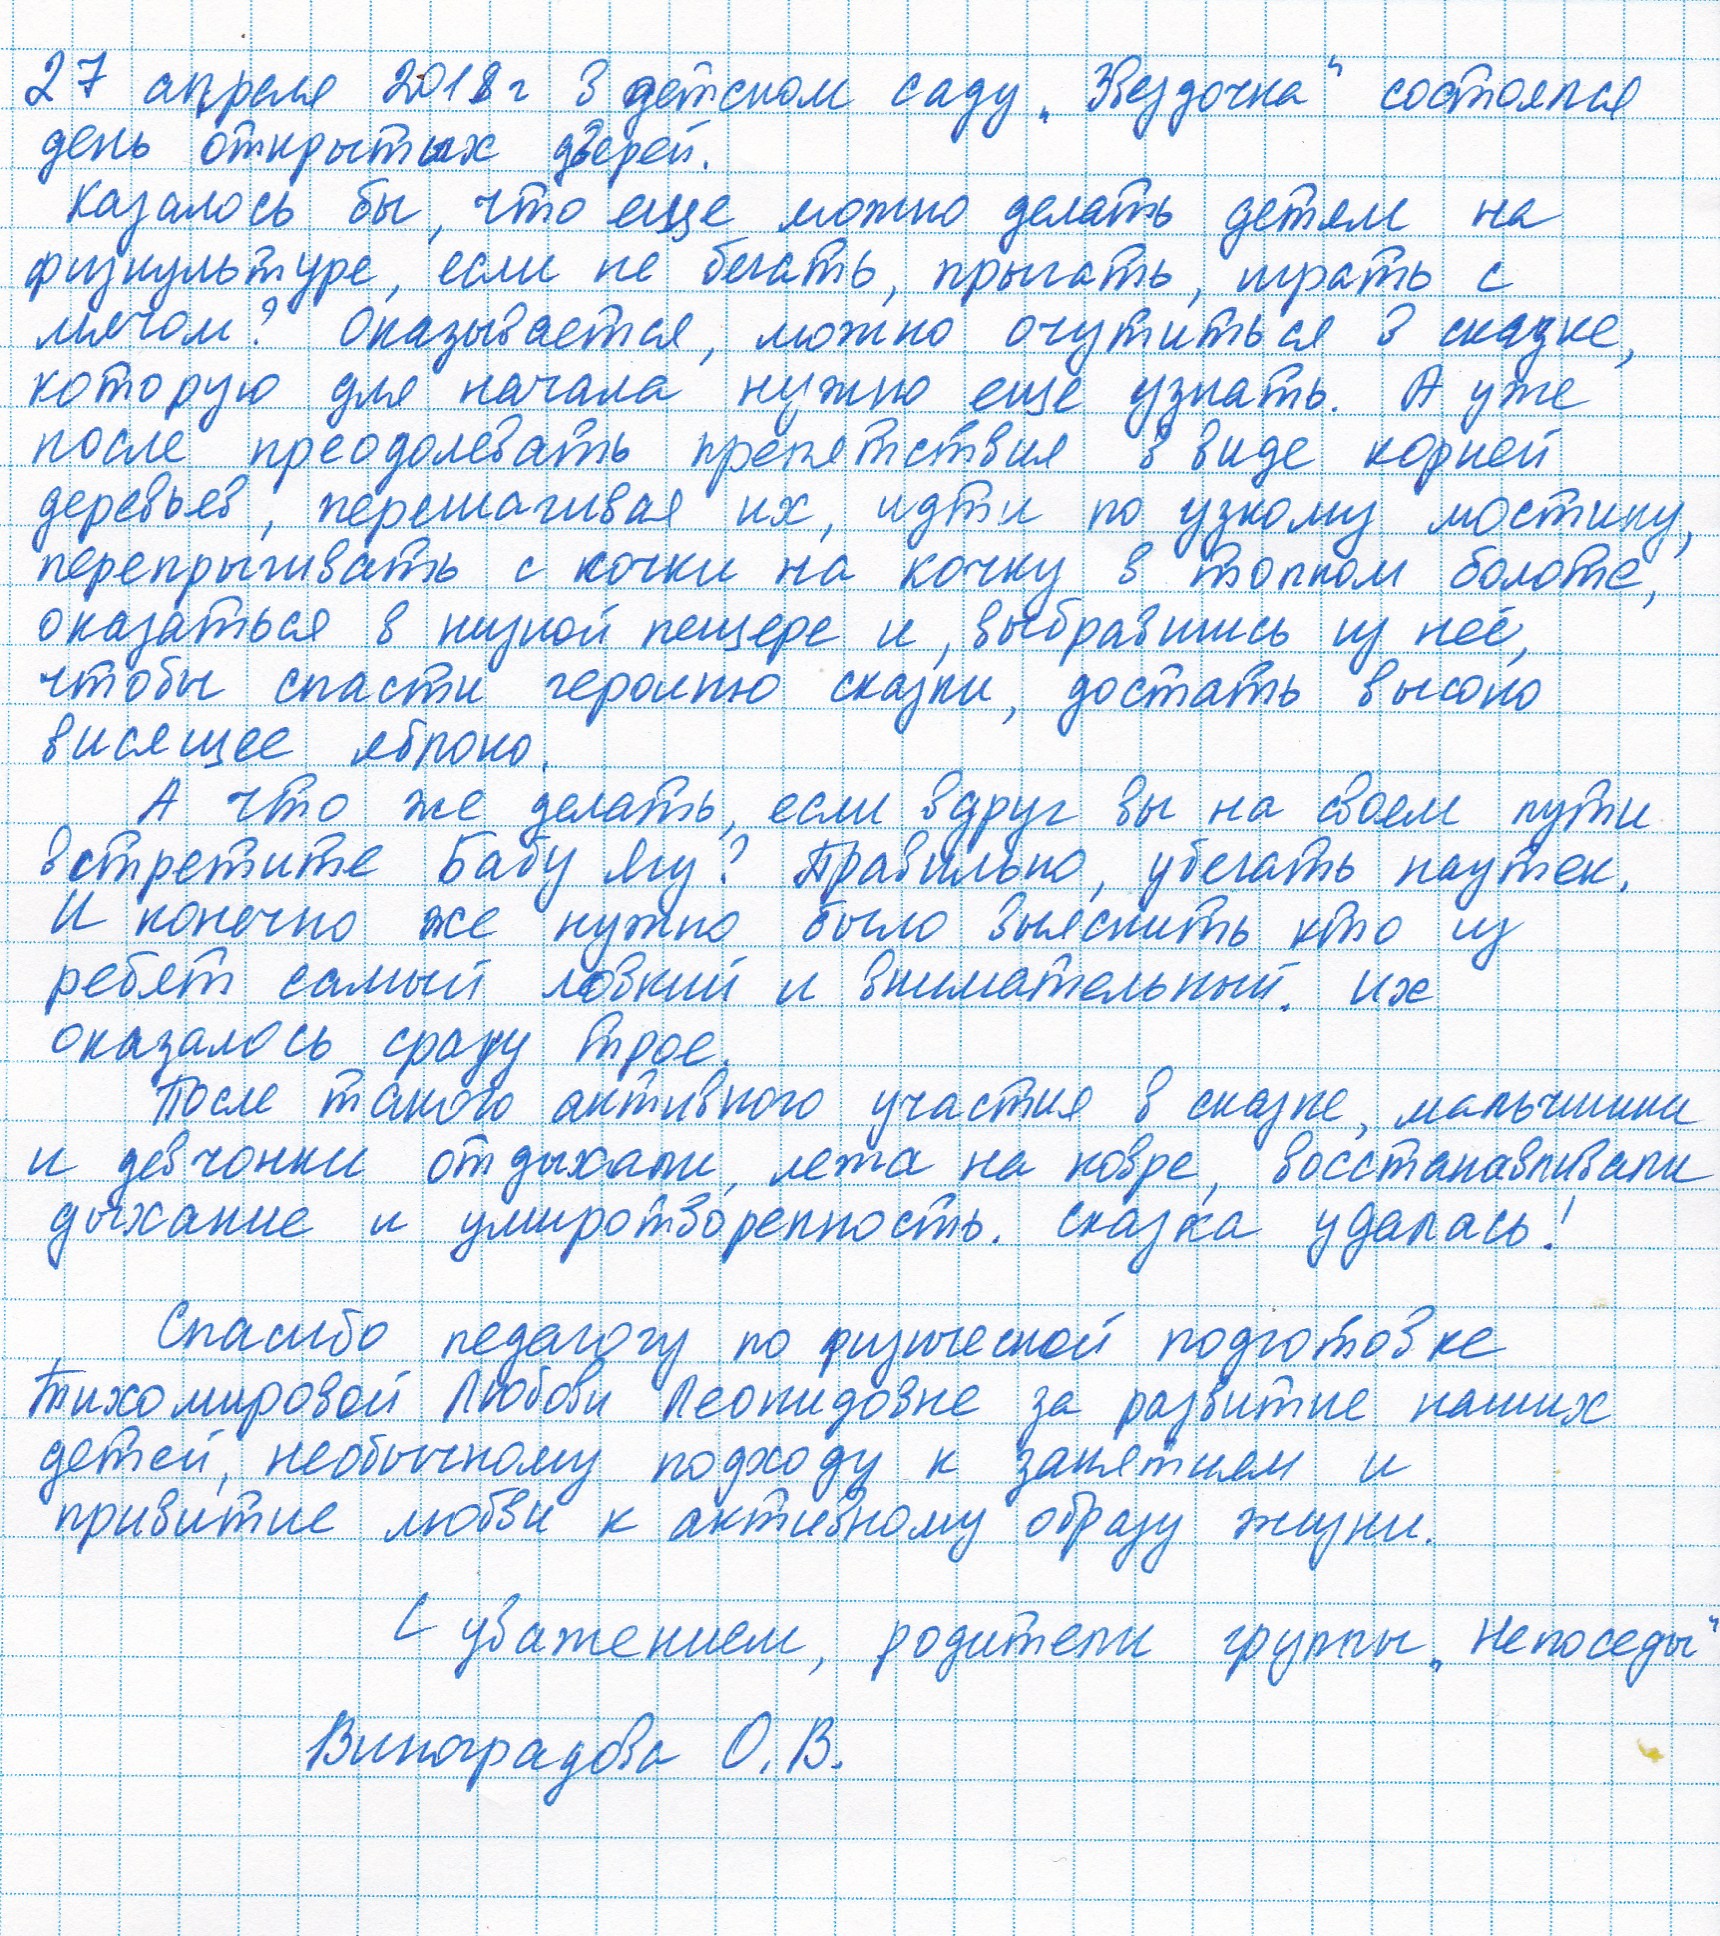 27 апреля 2018 г в детском саду „Звездочка“ состоялся
день открытых дверей.
Казалось бы, что еще можно делать детям на
физкультуре, если не бегать, прыгать, играть с
мячом? Оказывается, можно очутиться в сказке,
которую для начала нужно еще узнать. А уже
после преодолевать препятствия в виде корней
деревьев, перешагивая их, идти по узкому мостику,
перепрыгивать с кочки на кочку в топком болоте,
оказаться в низкой пещере и, выбравшись из неё,
чтобы спасти героиню сказки, достать высоко
висящее яблоко.
А что же делать, если вдруг вы на своем пути
встретите Бабу Ягу? Правильно, убегать наутек.
И конечно же нужно было выяснить кто из
ребят самый ловкий и внимательный. Их
оказалось сразу трое.
После такого активного участия в сказке, мальчишки
и девчонки отдыхали, лежа на ковре, восстанавливали
дыхание и умиротворенность. Сказка удалась!
Спасибо педагогу по физической подготовке
Тихомировой Любови Леонидовне за развитие наших
детей, необычному подходу к занятием и
привитие любви к активному образу жизни.
С уважением, родители группы „Непоседы“
Виноградова О. В.